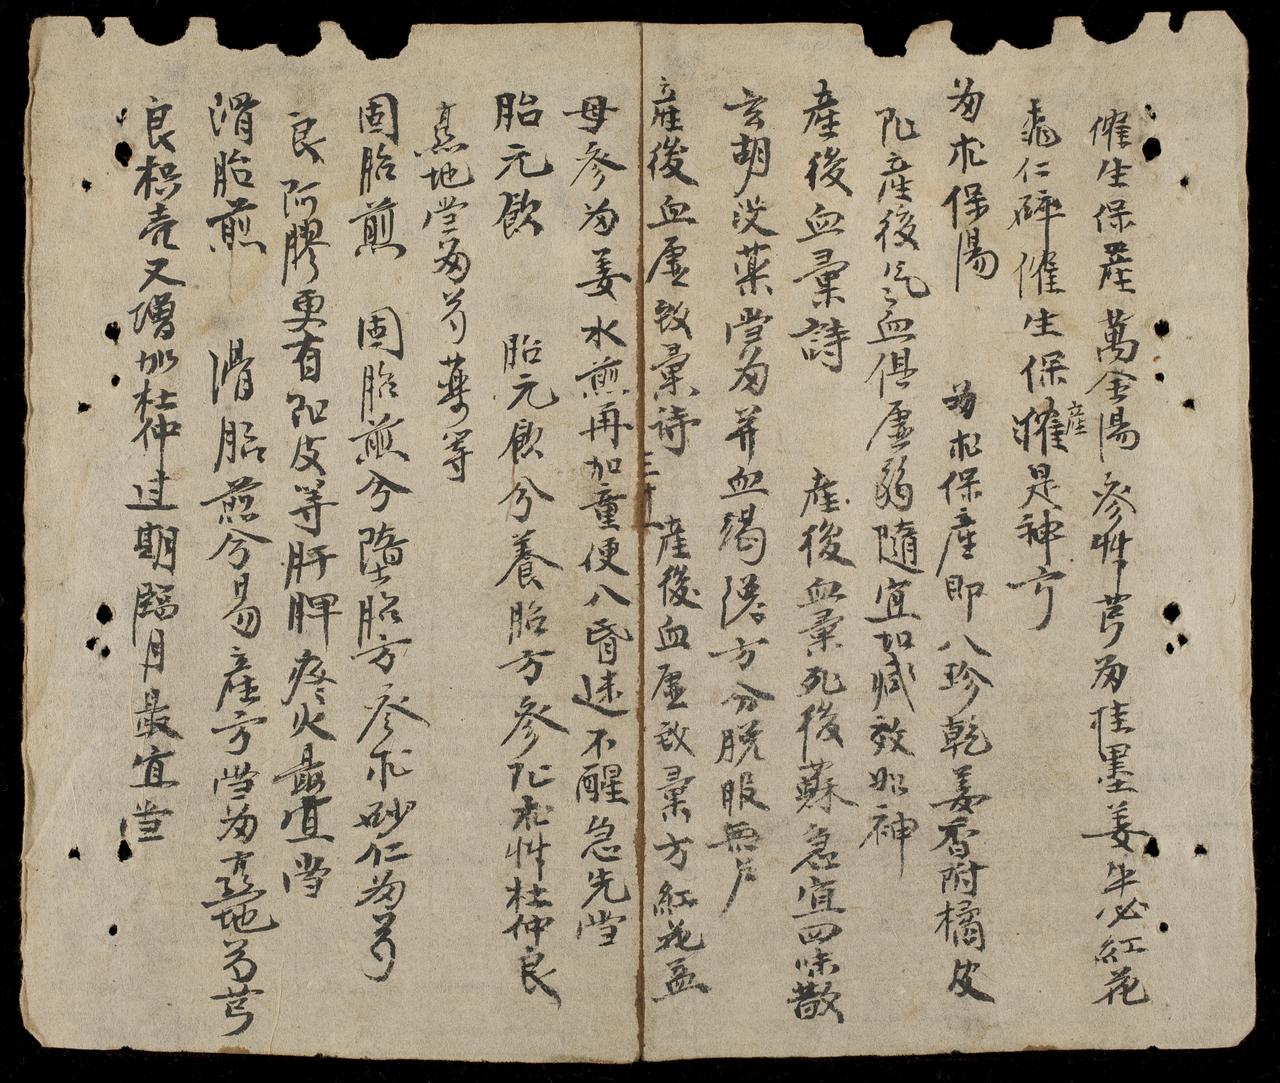 催生保產萬金湯參艸芎为桂墨姜牛必紅花
桃仁碎催生保產是神方
为朮保湯 为朮保產即八珍乾姜香附橘皮
凡產後气血俱虛弱隨宜加减效如神
產後血暈詩 產後血暈死後蘇急宜四味散
玄胡没薬当为并血竭 方分脱服無
產後血虛致暈詩 產後血虛致暈方紅花益
母參为姜水煎再加童便八昏迷不醒急先当
胎元飲 胎元飲兮養胎方參 朮 杜仲良
熟地当为芍薬等
固胎煎 固胎煎兮墮胎方 朮砂仁为芍
良阿膠更有 皮等肝脾 火最宜当
滑胎煎 滑胎煎兮易產方当为熟地芍芎
良枳壳又增加杜仲过期臨月最宜当